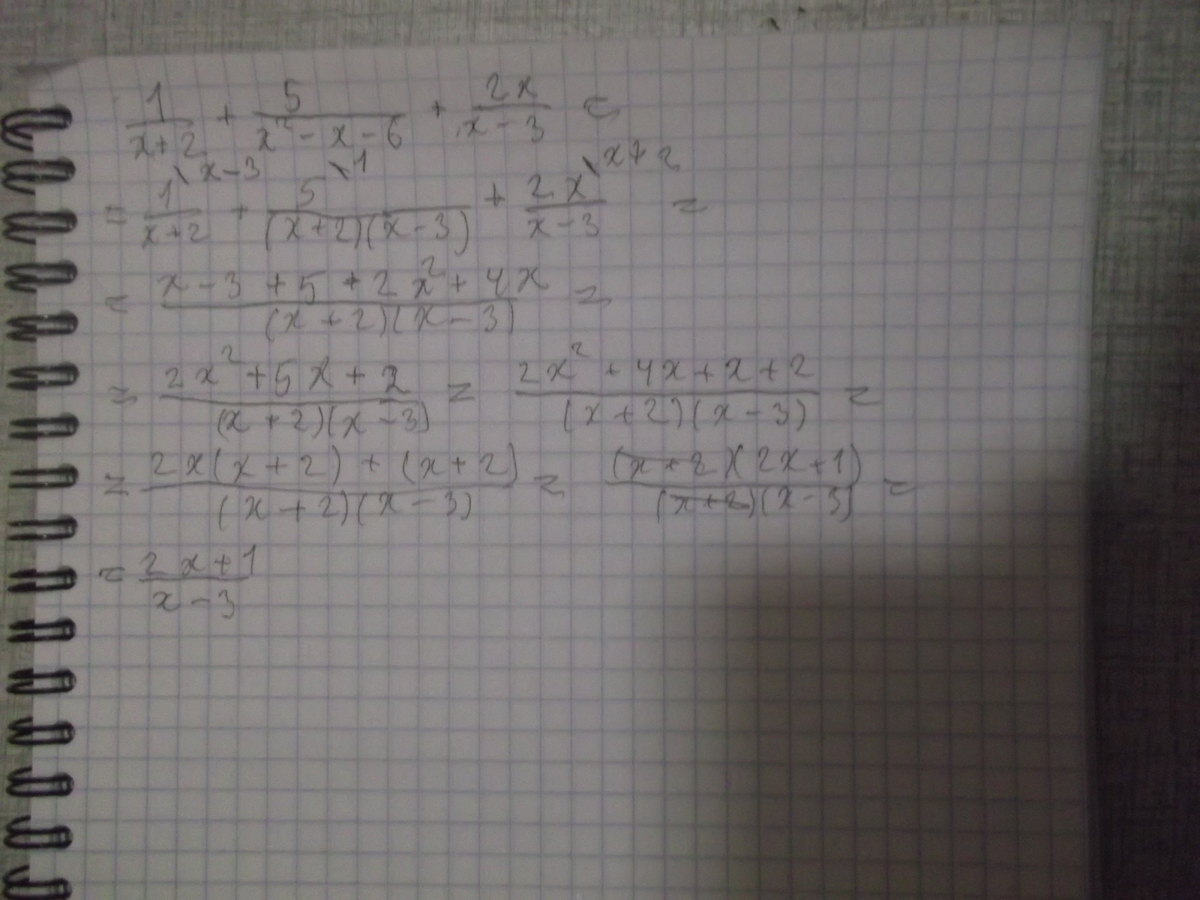 1/(x+2) + 5/(x²-x-6) + 2x/(x-3) =
= 1\x-3/(x+2) + 5\1/((x+2)(x-3)) + 2x\x+2/(x-3) =
= (x-3+5+2x²+4x)/((x+2)(x-3)) =
= (2x²+5x+2)/((x+2)(x-3)) = (2x²+4x+x+2)/((x+2)(x-3)) =
= (2x(x+2)+(x+2))/((x+2)(x-3)) = ((x+2)(2x+1))/((x+2)(x-3)) =
= (2x+1)/(x-3)